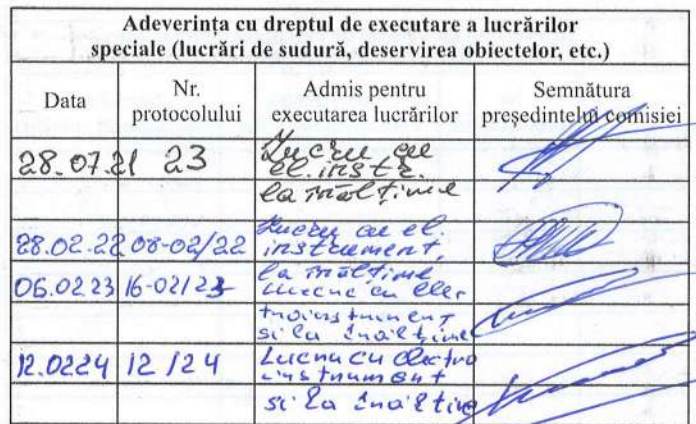 Adeverința cu dreptul de executare a lucrărilor
speciale (lucrări de sudură, deservirea obiectelor, etc.)
Data Nr. protocolului Admis pentru executarea lucrărilor Semnătura președintelui comisiei
28.07.21 23 Lucru cu
el. instr.
la înălțime
28.02.22 08-02/22 Lucru cu el.
instrument,
la înălțime
06.02.23 16-02/23 Lucru cu elec
troinstrument
si la înălțime
12.0224 12/24 Lucru cu electro
instrument
si la înălțime